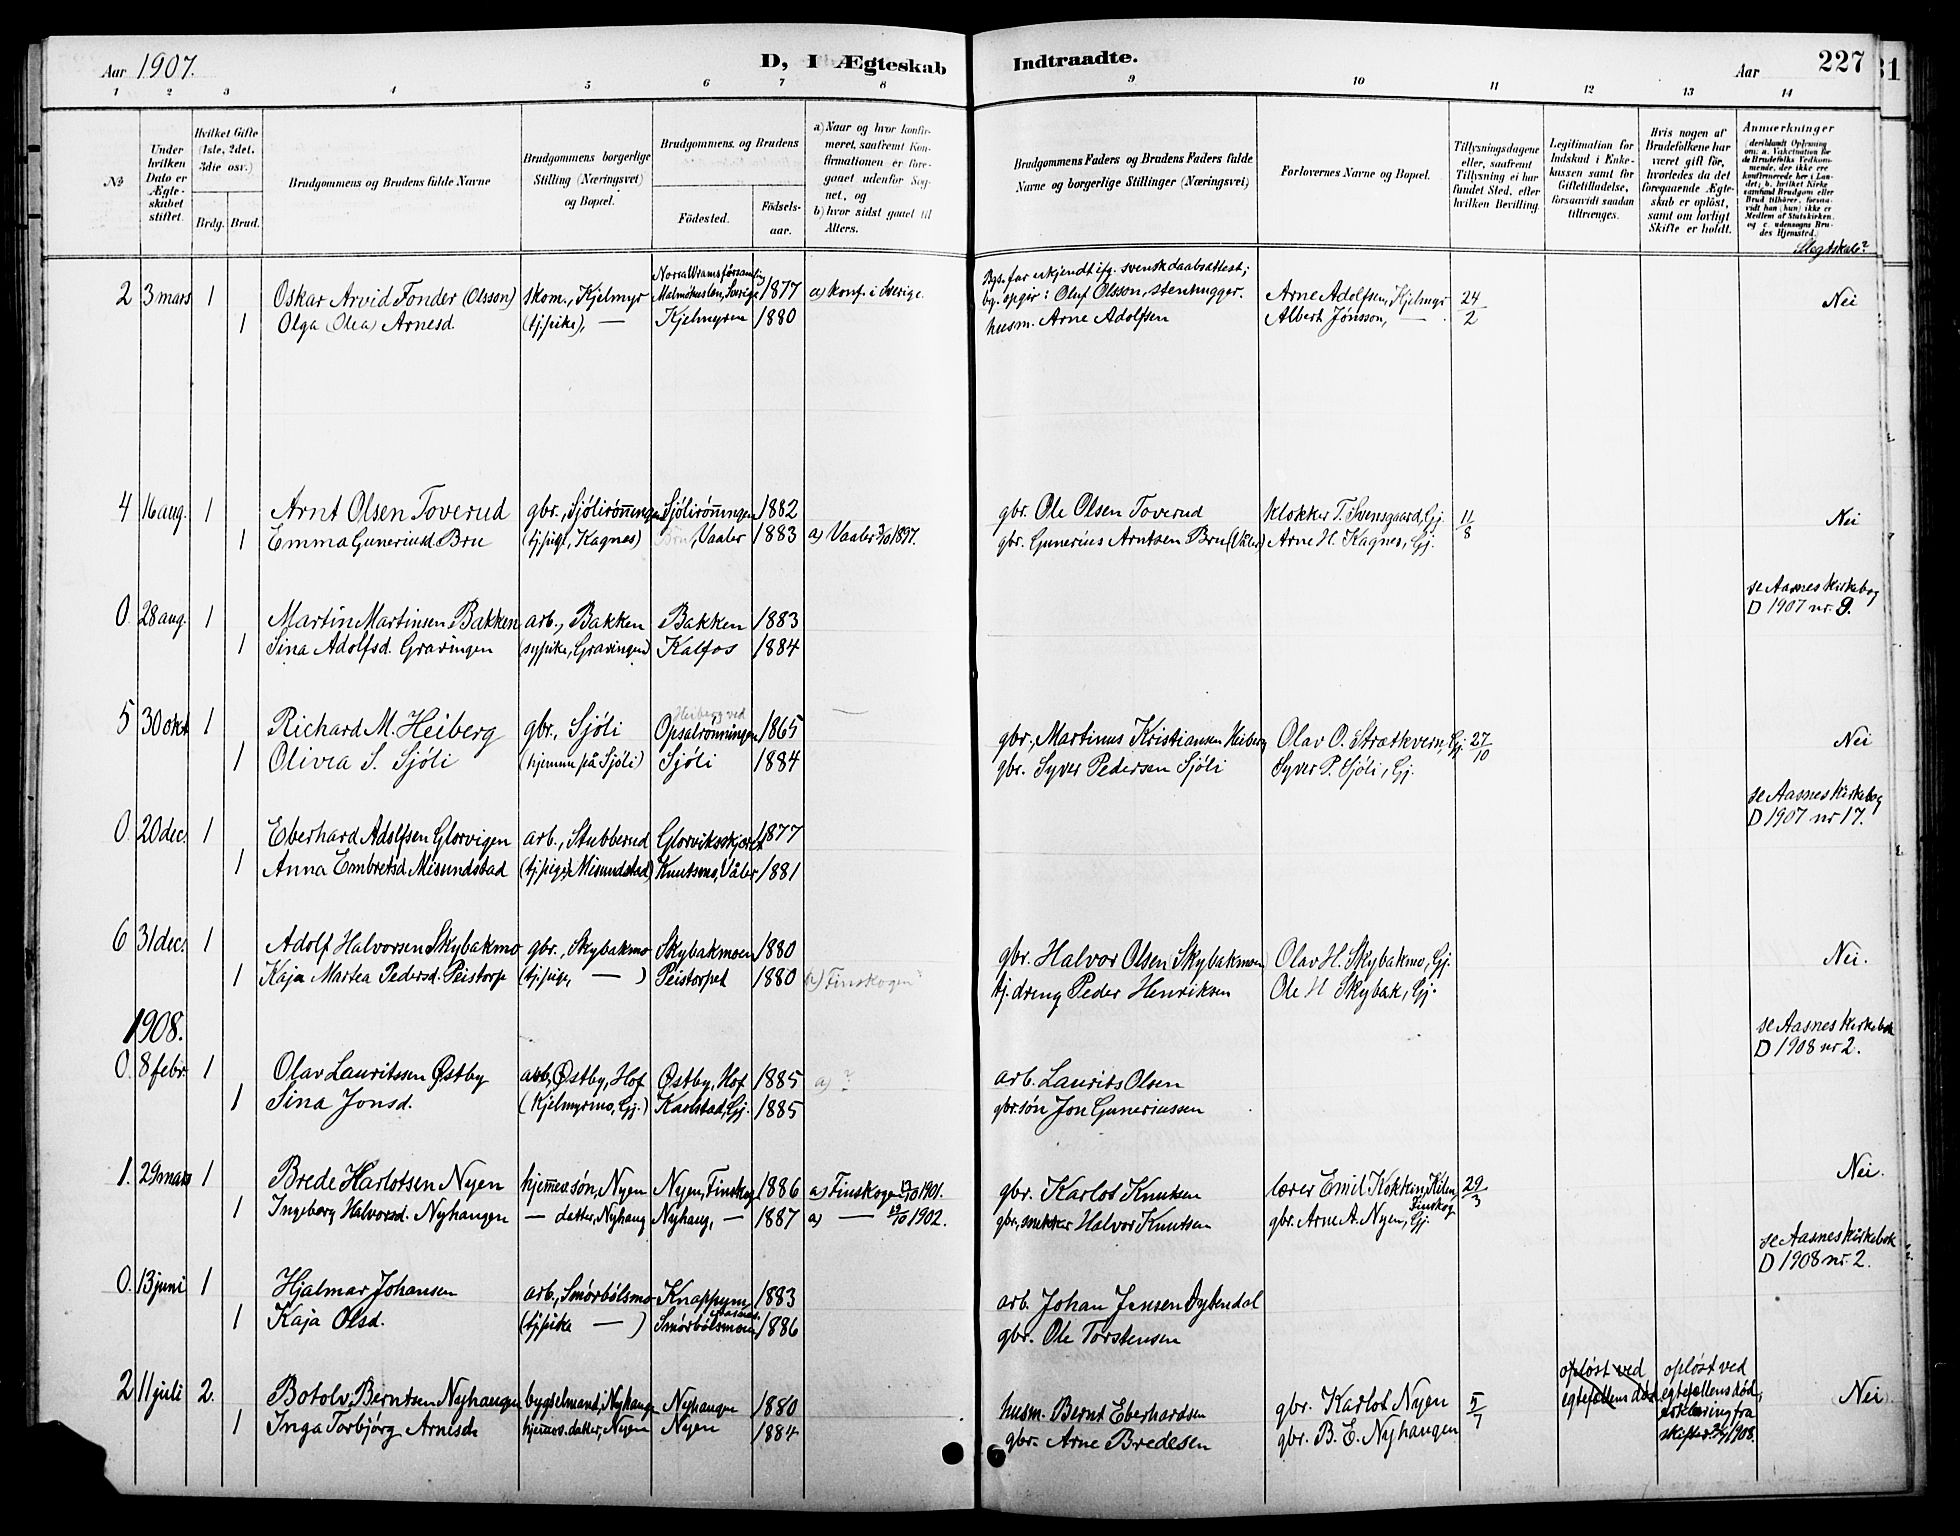 Aar 1907.
D, I Ægteskab Indtraadte.
Aar
227
31
1 2 3 4 5 6 7 8 9 10 11 12 13 14
No
Under hvilken Dato er Ægteskabet stiftet.
Hvilket Gifte (1ste, 2det, 3die osv.)
Brdg. Brud.
Brudgommens og Brudens fulde Navne
Brudgommens borgerlige Stilling (Næringsvei) og Bopæl.
Brudgommens og Brudens
Fødested.
Fødsels-aar.
a) Naar og hvor konfirmeret, saafremt Konfirmationen er foregaaet udenfor Sognet, og
b) hvor sidst gaaet til Alters.
Brudgommens Faders og Brudens Faders fulde Navne og borgerlige Stillinger (Næringsvei)
Forlovernes Navne og Bopæl.
Tillysningsdagene eller, saafremt Tillysning ei har fundet Sted, efter hvilken Bevilling.
Legitimation for Indskud i Enkekassen samt for Giftetilladelse, forsaavidt saadan tiltrænges.
Hvis nogen af Brudefolkene har været gift før, hvorledes da det foregaaende Ægteskab er opløst, samt om lovligt Skifte er holdt.
Anmerkninger (deriblandt Oplysning om: a. Vakcination for de Brudefolks Vedkommende, der ikke ere konfirmerede her i Landet; b. hvilket Kirkesamfund Brudgom eller Brud tilhører, forsaavidt han (hun) ikke er Medlem af Statskirken, og c. udensogns Brudes Hjemsted.
Slegtskab?
2 3 mars 1 Oskar Arvid Fonder (Olsson) skom., Kjelmyr Norra Wrams församling Malmøhuslen, Sverige 1877 a) konf. i Sverige. Bgs. far erkjendt ifg. svensk daabsattest; bg. opgir: Oluf Olsson, stenhugger. Arne Adolfsen, Kjelmyr 24/2 Nei
1 Olga (Olea) Arnesd. (tj.pike), — Kjelmyren 1880 husm. Arne Adolfsen Albert Jónsson, —
4 16 aug. 1 Arnt Olsen Toverud gbr., Sjólirønningen Sjólirønningen 1882 gbr. Ole Olsen Toverud klokker T. Svensgaard, Gj. 11/8 Nei
1 Emma Guneriusd. Bru (tj.pige, Kagnes) Bru, Vaaler 1883 a) Vaaler 3/10 1897. gbr. Gunerius Arntsen Bru (Våler) Arne H. Kagnes, Gj.
se Aasnes Kirkebog D 1907 nr. 9.
0. 28 aug. 1 Martin Martinsen Bakken arb., Bakken Bakken 1883
1 Sina Adolfsd. Gravingen (sypike, Gravingen) Kalfos 1884
5 30 okt. 1 Richard M. Heiberg gbr., Sjóli Heiberg ved Opsalrønningen 1865 — gbr. Martinus Kristiansen Heiberg Olav O. Strætkvern, Gj. 27/10 Nei
1 Olivia S. Sjóli (hjemme på Sjóli) Sjóli 1884 gbr. Syver Pedersen Sjóli Syver P. Sjóli, Gj.
se Aasnes Kirkebog D 1907 nr 17.
0. 20 dec. 1 Eberhard Adolfsen Glorvigen arb., Stubberud Glorviksskjæret 1877
1 Anna Embretsd. Misundstad (tj.pige, Misundstad) Knutsmo, Våler 1881
6 31 dec. 1 Adolf Halvorsen Skybakmo gbr., Skybakmo Skybakmoen 1880 gbr. Halvor Olsen Skybakmoen Olav H. Skybakmo, Gj. Nei.
1 Kaja Martea Pedersd. Peistorp (tj.pige, —) Peistorpet 1880 a) Finskogen tj.dreng Peder Henriksen Ole H Skybak, Gj.
1908.
se Aasnes Kirkebok D 1908 nr 2.
0. 8 febr. 1 Olav Lauritssen Østby arb., Østby, Hof Østby, Hof 1885 a) ? arb. Laurits Olsen
1 Sina Jonsd. (Kjelmyrmo, Gj.) Karlstad, Gj. 1885 gbr.søn Jon Guneriussen
1. 29 mars 1 Brede Karlotsen Nyen hjemmesøn, Nyen Nyen, Finskog 1886 a) Finskogen 13/10 1901. gbr. Karlot Knutsen lærer Emil Kokken, Kilen, Finskog 29/3 Nei.
1 Ingeborg Halvorsd. Nyhangen — datter, Nyhaug Nyhaug, — 1887 a) — 19/10 1902. gbr., snekker Halvor Knutsen gbr. Arne A. Nyen, Gj.
se Aasnes Kirkebok D 1908 nr. 2.
0. 13 juni 1 Hjalmar Johansen arb., Smørbølsmo Knappom, 1883 arb. Johan Jensen
1 Kaja Olsd. (tj.pike —) Smørbølsmoen 1886 gbr. Ole Torstensen
2 11 juli 2. Botolv Berntsen Nyhaugen bygselmand, Nyhaugen Nyhaugen 1880 husm. Bernt Eberhardsen gbr. Karlot Nyen 5/7 opløst ved egtefællens død opløst ved egtefællens død; erklæring fra skifter. 1908. Nei
1 Inga Torbjørg Arnesd. hjemmev. datter, Nyen Nyen 1884 gbr. Arne Bredesen gbr. B. E. Nyhangen